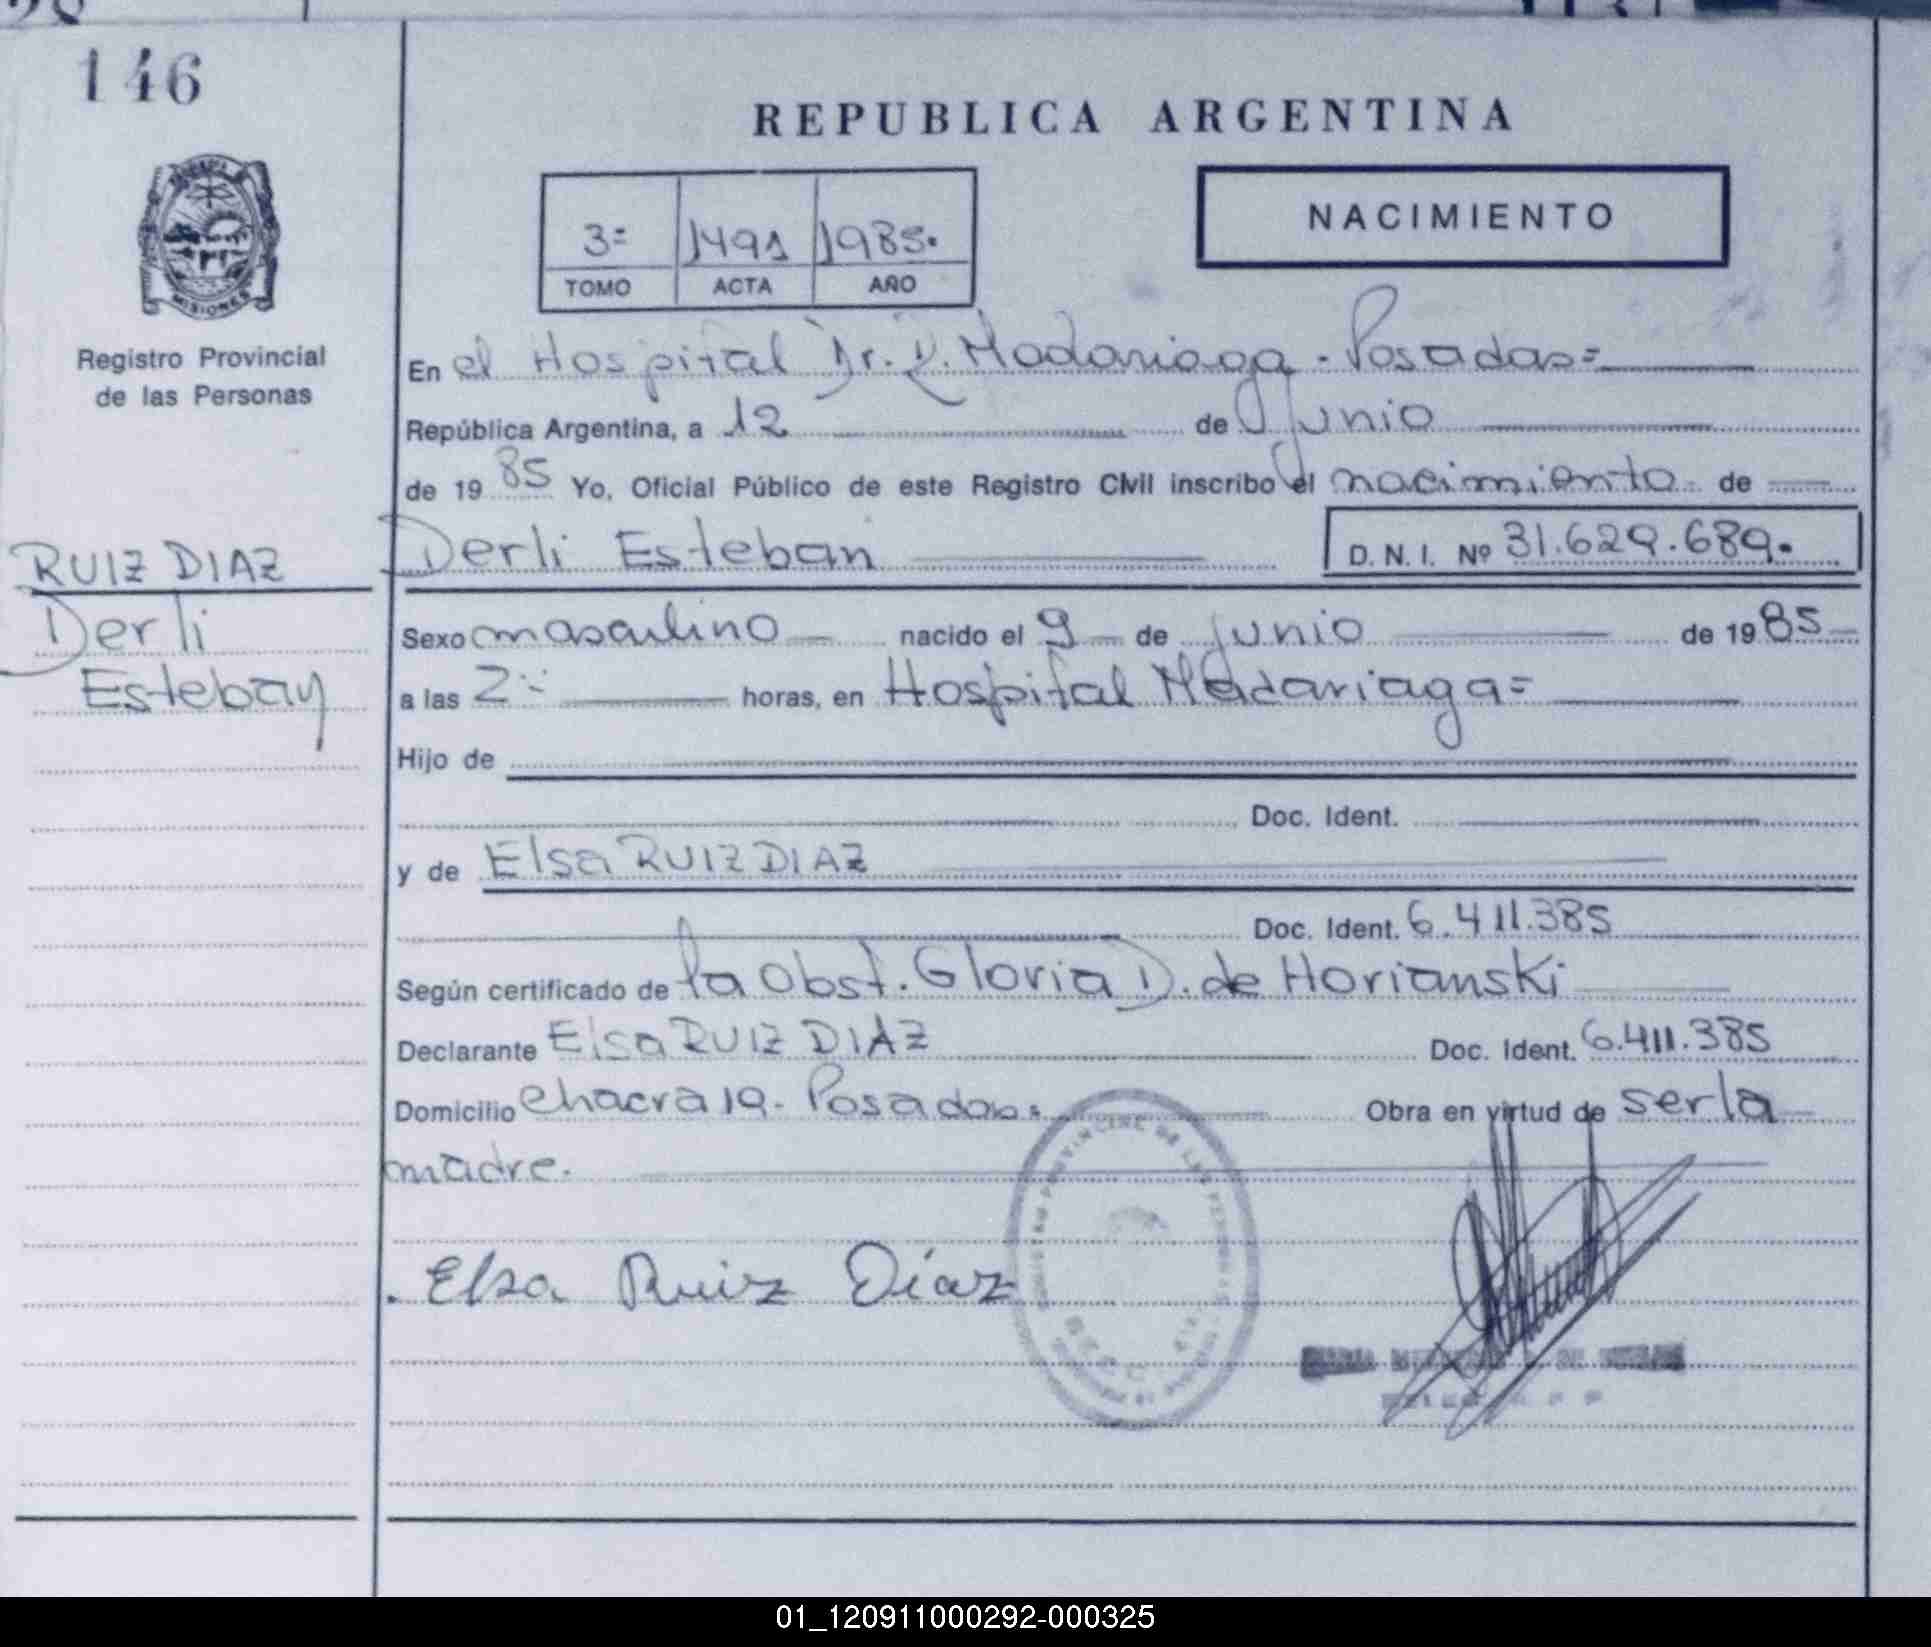 146
REPUBLICA ARGENTINA
NACIMIENTO
3= 1491 1985.
TOMO ACTA AÑO
MISIONES
Registro Provincial
de las Personas
En el Hospital Dr. R. Madariaga - Posadas=
República Argentina, a 12 de Junio
de 1985 Yo, Oficial Público de este Registro Civil inscribo el nacimiento de
Derli Esteban D. N. I. Nº 31.629.689.
RUIZ DIAZ
Derli
Esteban
Sexo masculino nacido el 9 de Junio de 1985
a las 2 horas, en Hospital Madariaga=
Hijo de
Doc. Ident.
y de Elsa RUIZ DIAZ
Doc. Ident. 6.411.385
Según certificado de la Obst. Gloria D. de Horianski
Declarante Elsa RUIZ DIAZ Doc. Ident. 6.411.385
Domicilio Chacra 19- Posadas= Obra en virtud de ser la
madre.
Elsa Ruiz Díaz
01_120911000292-000325